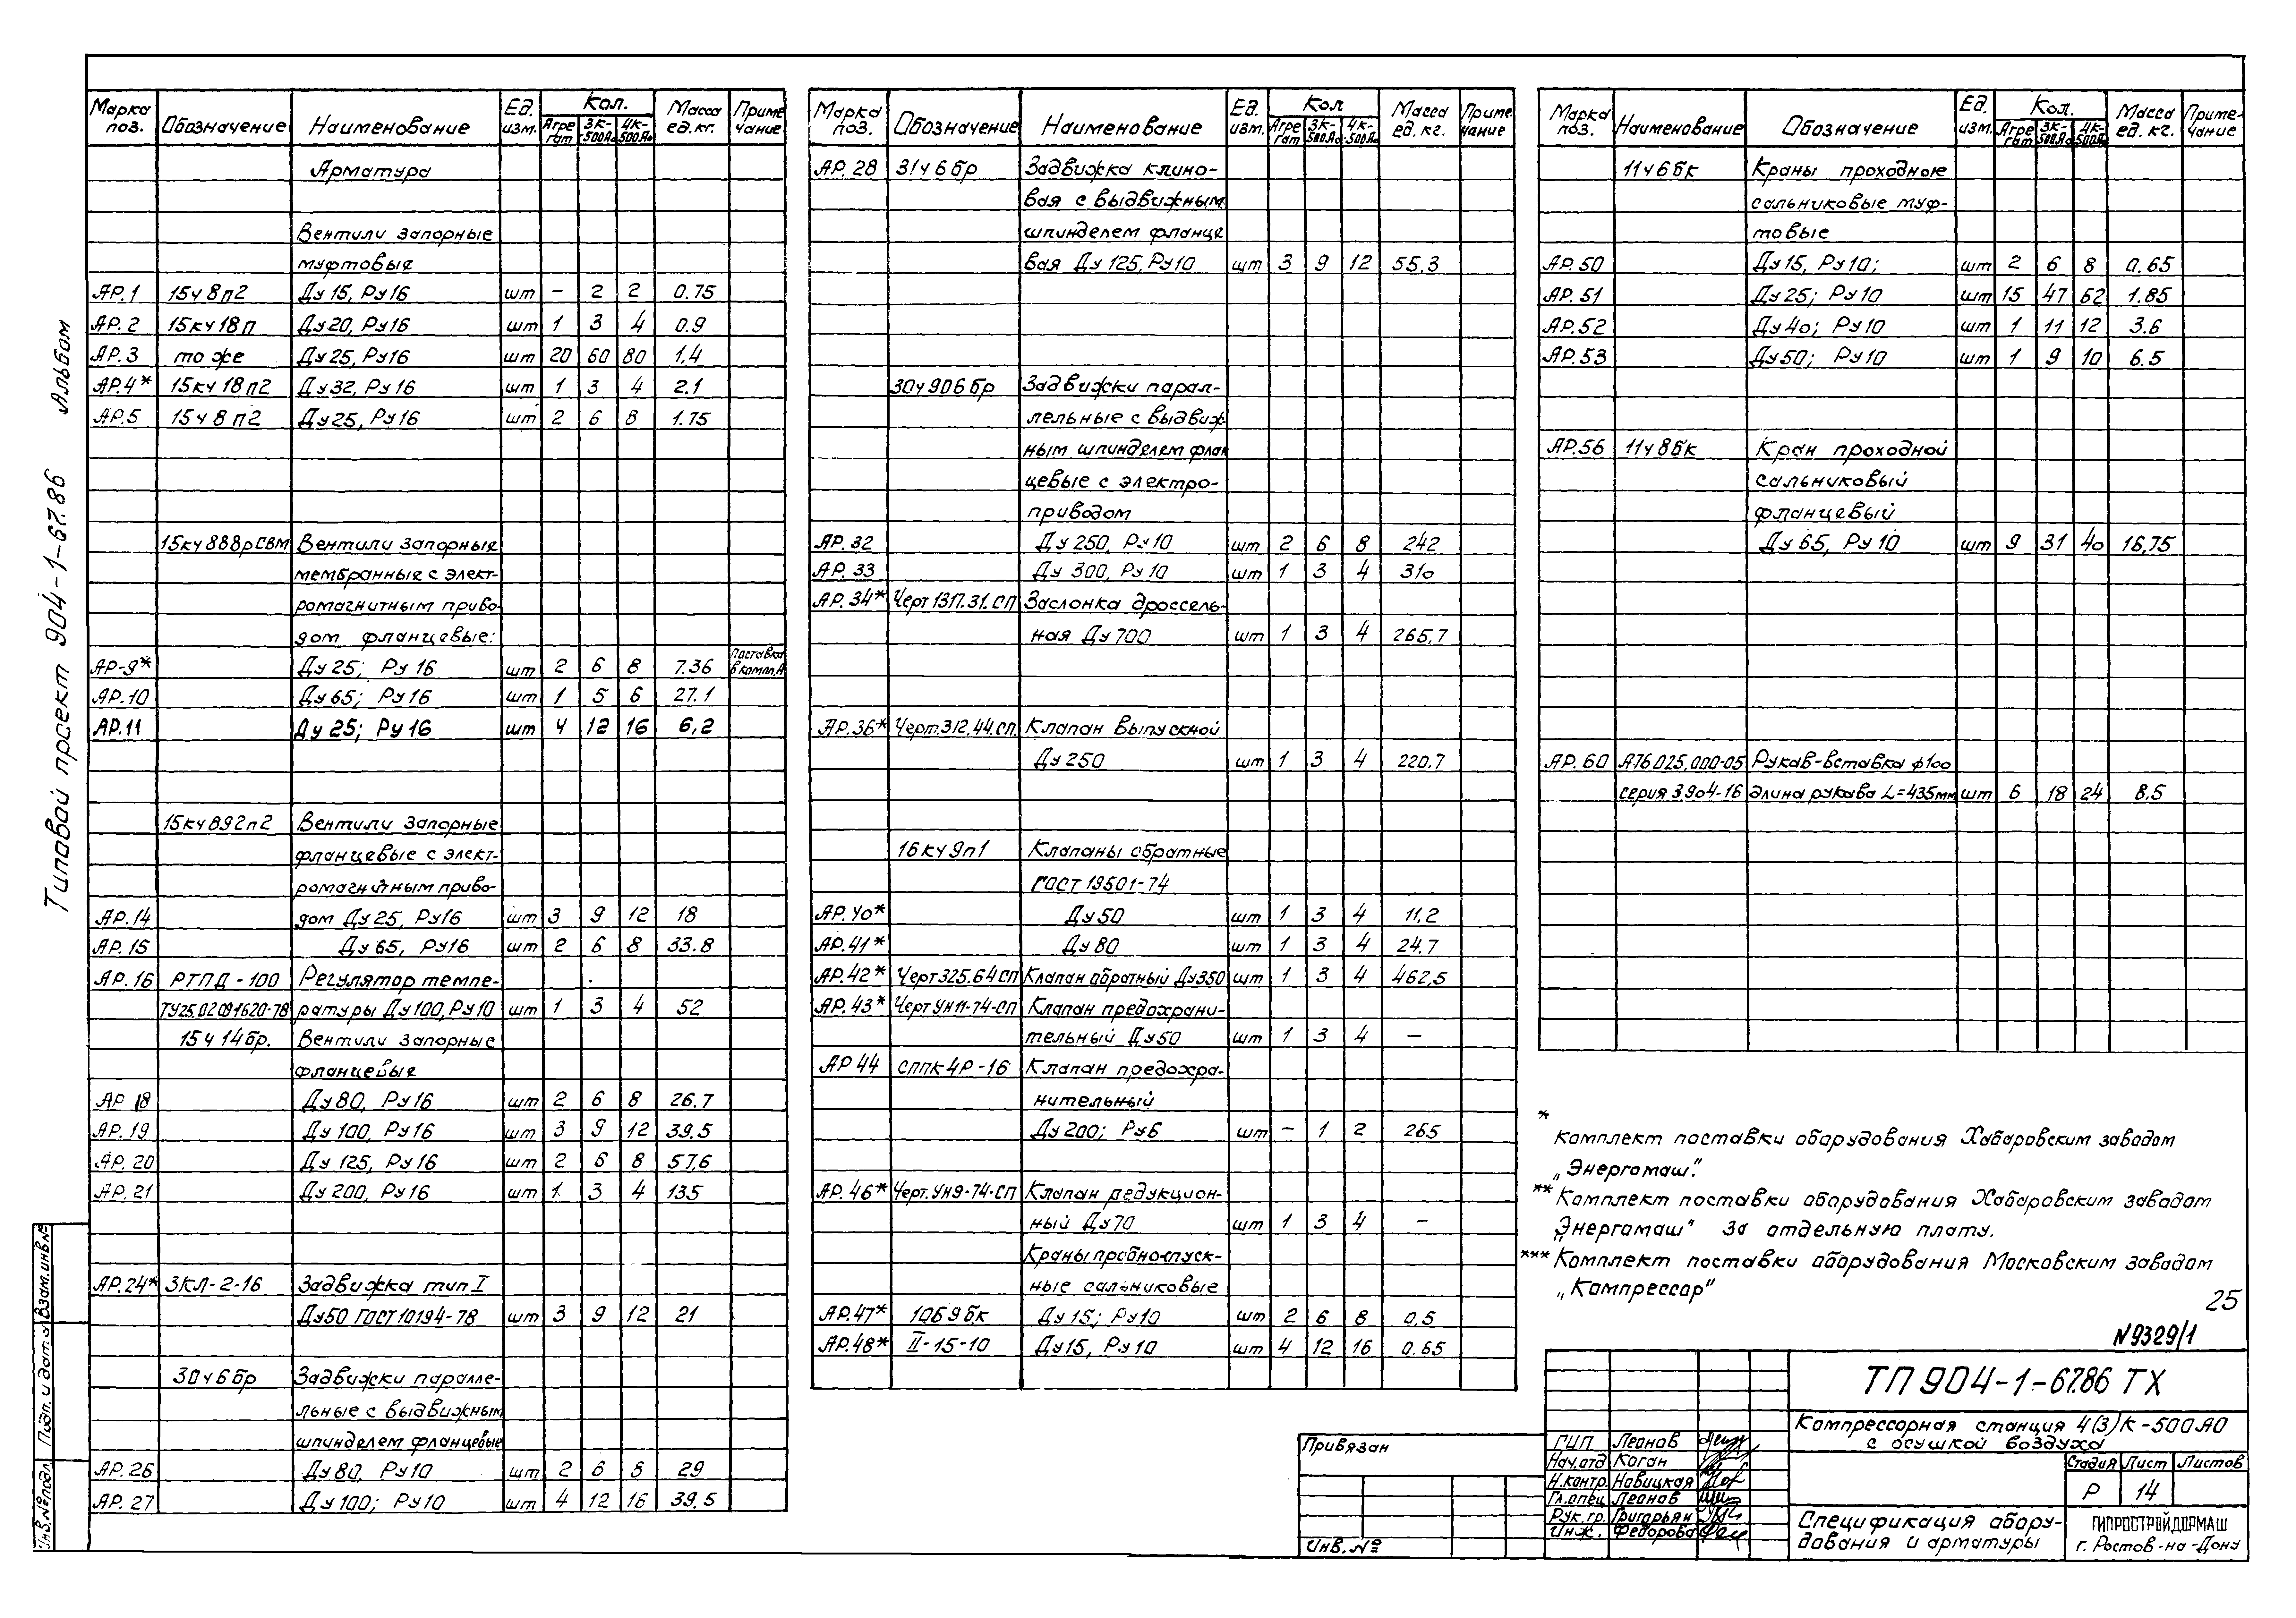 Типовой проект 904-1-67.86 Альбом
Марка поз. Обозначение Наименование Ед. изм. Кол. Агрегат 3К-500Ао 4К-500Ао Масса ед.кг. Примечание
Арматура
Вентили запорные
муфтовые
АР.1 15ч8п2 Ду15, Ру16 шт - 2 2 0.75
АР.2 15кч18п Ду20, Ру16 шт 1 3 4 0.9
АР.3 то же Ду25, Ру16 шт 20 60 80 1,4
АР.4* 15кч18п2 Ду32, Ру16 шт 1 3 4 2.1
АР.5 15ч8п2 Ду25, Ру16 шт 2 6 8 1.75
15кч888рСВМ Вентили запорные
мембранные с элект-
ромагнитным приво-
дом фланцевые:
АР-9* Ду25; Ру16 шт 2 6 8 7.36 Поставка в компл.А
АР.10 Ду65; Ру16 шт 1 5 6 27.1
АР.11 Ду25; Ру16 шт 4 12 16 6,2
15кч892п2 Вентили запорные
фланцевые с элект-
ромагнитным приво-
АР.14 дом Ду25, Ру16 шт 3 9 12 18
АР.15 Ду65, Ру16 шт 2 6 8 33.8
АР.16 РТПД-100 Регулятор темпе-
ТУ25.02091620-78 ратуры Ду100, Ру10 шт 1 3 4 52
15ч14бр. Вентили запорные
фланцевые
АР 18 Ду80, Ру16 шт 2 6 8 26.7
АР.19 Ду100, Ру16 шт 3 9 12 39.5
АР.20 Ду125, Ру16 шт 2 6 8 57,6
АР.21 Ду200, Ру16 шт 1 3 4 135
АР.24* ЗКЛ-2-16 Задвижка тип I
Ду50 ГОСТ10194-78 шт 3 9 12 21
30ч6бр Задвижки паралле-
льные с выдвижным
шпинделем фланцевые
АР.26 Ду80, Ру10 шт 2 6 8 29
АР.27 Ду100; Ру10 шт 4 12 16 39.5
Марка поз. Обозначение Наименование Ед. изм. Кол Агрегат 3К-500Ао 4К-500Ао Масса ед.кг. Примечание
АР.28 31ч6бр Задвижка клино-
вая с выдвижным
шпинделем фланце
вая Ду125, Ру10 шт 3 9 12 55,3
30ч906бр Задвижки парал-
лельные с выдвиж
ным шпинделем флан
цевые с электро-
приводом
АР.32 Ду250, Ру10 шт 2 6 8 242
АР.33 Ду300, Ру10 шт 1 3 4 310
АР.34* Черт131.31.СП Заслонка дроссель-
ная Ду700 шт 1 3 4 265,7
АР.36* Черт.312.44.СП. Клапан выпускной
Ду250 шт 1 3 4 220.7
16кч9п1 Клапаны обратные
ГОСТ19501-74
АР.40* Ду50 шт 1 3 4 11.2
АР.41* Ду80 шт 1 3 4 24.7
АР.42* Черт325.64СП Клапан обратный Ду350 шт 1 3 4 462,5
АР.43* Черт.УН11-74-СП Клапан предохрани-
тельный Ду50 шт 1 3 4 —
АР 44 СППК4Р-16 Клапан предохра-
нительный
Ду200; Ру6 шт - 1 2 265
АР.46* Черт.УН9-74-СП Клапан редукцион-
ный Ду70 шт 1 3 4 -
Краны пробно-спуск-
ные сальниковые
АР.47* 10Б9бк Ду15; Ру10 шт 2 6 8 0,5
АР.48* II-15-10 Ду15, Ру10 шт 4 12 16 0.65
Марка поз. Наименование Обозначение Ед. изм. Кол. Агрегат 3К-500Ао 4К-500Ао Масса ед.кг. Приме-чание
11ч6бк Краны проходные
сальниковые муф-
товые
АР.50 Ду15, Ру10; шт 2 6 8 0.65
АР.51 Ду25; Ру10 шт 15 47 62 1.85
АР.52 Ду40; Ру10 шт 1 11 12 3.6
АР.53 Ду50; Ру10 шт 1 9 10 6.5
АР.56 11ч8бк Кран проходной
сальниковый
фланцевый
Ду65, Ру10 шт 9 31 40 16,75
АР.60 А76.025.000-05 Рукав-вставка ф100
серия 3.904-16 длина рукава L=435мм шт 6 18 24 8,5
*
комплект поставки оборудования Хабаровским заводом
„Энергомаш".
** Комплект поставки оборудования Хабаровским заводом
„Энергомаш" за отдельную плату.
*** Комплект поставки оборудования Московским заводом
„Компрессор"
25
N9329/1
ТП 904-1-67.86 ТХ
Компрессорная станция 4(3)К-500АО
с осушкой воздуха
Стадия Лист Листов
Р 14
Спецификация обору-
дования и арматуры
ГИПРОСТРОЙДОРМАШ
г. Ростов-на-Дону
ГИП Леонов
Нач.отд Коган
Н.контр. Новицкая
Гл.спец Леонов
Рук.гр. Григорьян
Инж. Федорова
Привязан
Инв.№
Взам.инв.№
Подп. и дата
Инв.№подл.